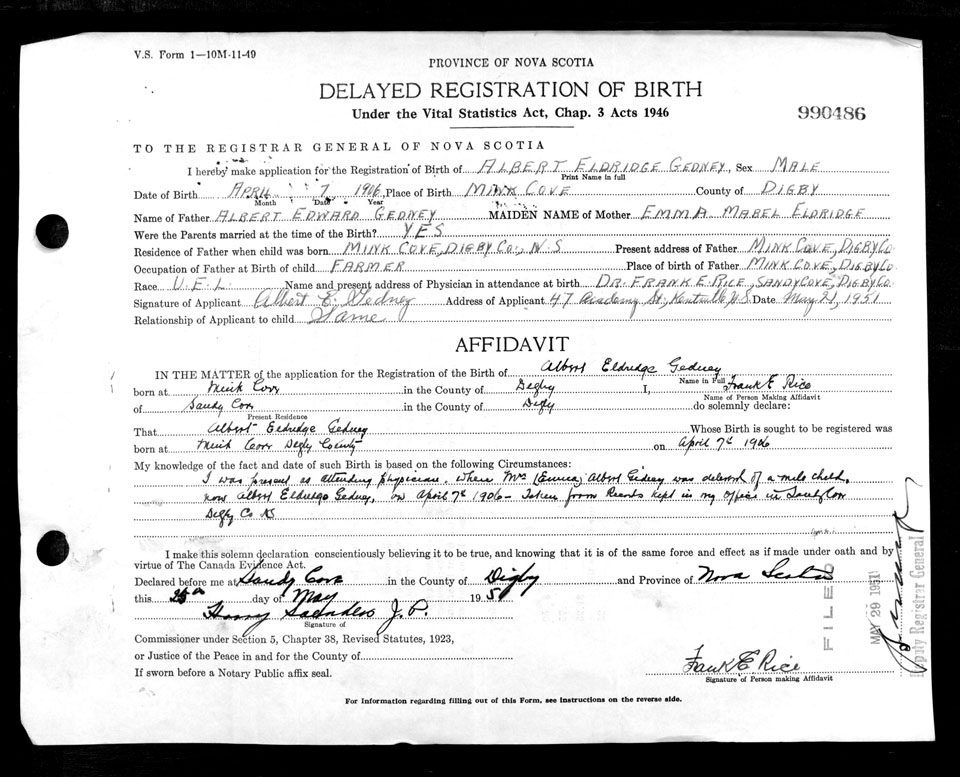 V.S. Form 1—10M-11-49
PROVINCE OF NOVA SCOTIA
DELAYED REGISTRATION OF BIRTH
Under the Vital Statistics Act, Chap. 3 Acts 1946
990486
TO THE REGISTRAR GENERAL OF NOVA SCOTIA
I hereby make application for the Registration of Birth of ALBERT ELDRIDGE GEDNEY Sex MALE
Print Name in full
Date of Birth APRIL 7 1906, Place of Birth MINK COVE County of DIGBY
Month Date Year
Name of Father ALBERT EDWARD GEDNEY MAIDEN NAME of Mother EMMA MABEL ELDRIDGE
Were the Parents married at the time of the Birth? YES
Residence of Father when child was born MINK COVE, DIGBY CO., N.S Present address of Father MINK COVE, DIGBY CO.
Occupation of Father at Birth of child FARMER Place of birth of Father MINK COVE, DIGBY CO
Race U.E.L. Name and present address of Physician in attendance at birth DR. FRANK E. RICE, SANDY COVE, DIGBY CO.
Signature of Applicant Albert E. Gedney Address of Applicant 47 Academy St., Kentville, N.S. Date May 21, 1951
Relationship of Applicant to child Same
AFFIDAVIT
IN THE MATTER of the application for the Registration of the Birth of Albert Eldridge Gedney
Name in Full
born at Mink Cove in the County of Digby I, Frank E Rice
Name of Person Making Affidavit
of Sandy Cove in the County of Digby do solemnly declare:
Present Residence
That Albert Eldridge Gedney Whose Birth is sought to be registered was
born at Mink Cove Digby County on April 7th 1906
My knowledge of the fact and date of such Birth is based on the following Circumstances:
I was present as attending physician, where Mrs Albert Gedney was delivered of a male child,
now Albert Eldridge Gedney, on April 7th 1906 - Taken from Records kept in my office in Sandy Cove
Digby Co NS
I make this solemn declaration conscientiously believing it to be true, and knowing that it is of the same force and effect as if made under oath and by
virtue of The Canada Evidence Act.
Declared before me at Sandy Cove in the County of Digby and Province of Nova Scotia
this 25th day of May 1951
Harry Saunders J.P.
Signature of
Commissioner under Section 5, Chapter 38, Revised Statutes, 1923,
or Justice of the Peace in and for the County of
If sworn before a Notary Public affix seal.
Frank E Rice
Signature of Person making Affidavit
FILED
MAY 29 1951
Deputy Registrar General
For Information regarding filling out of this Form, see instructions on the reverse side.